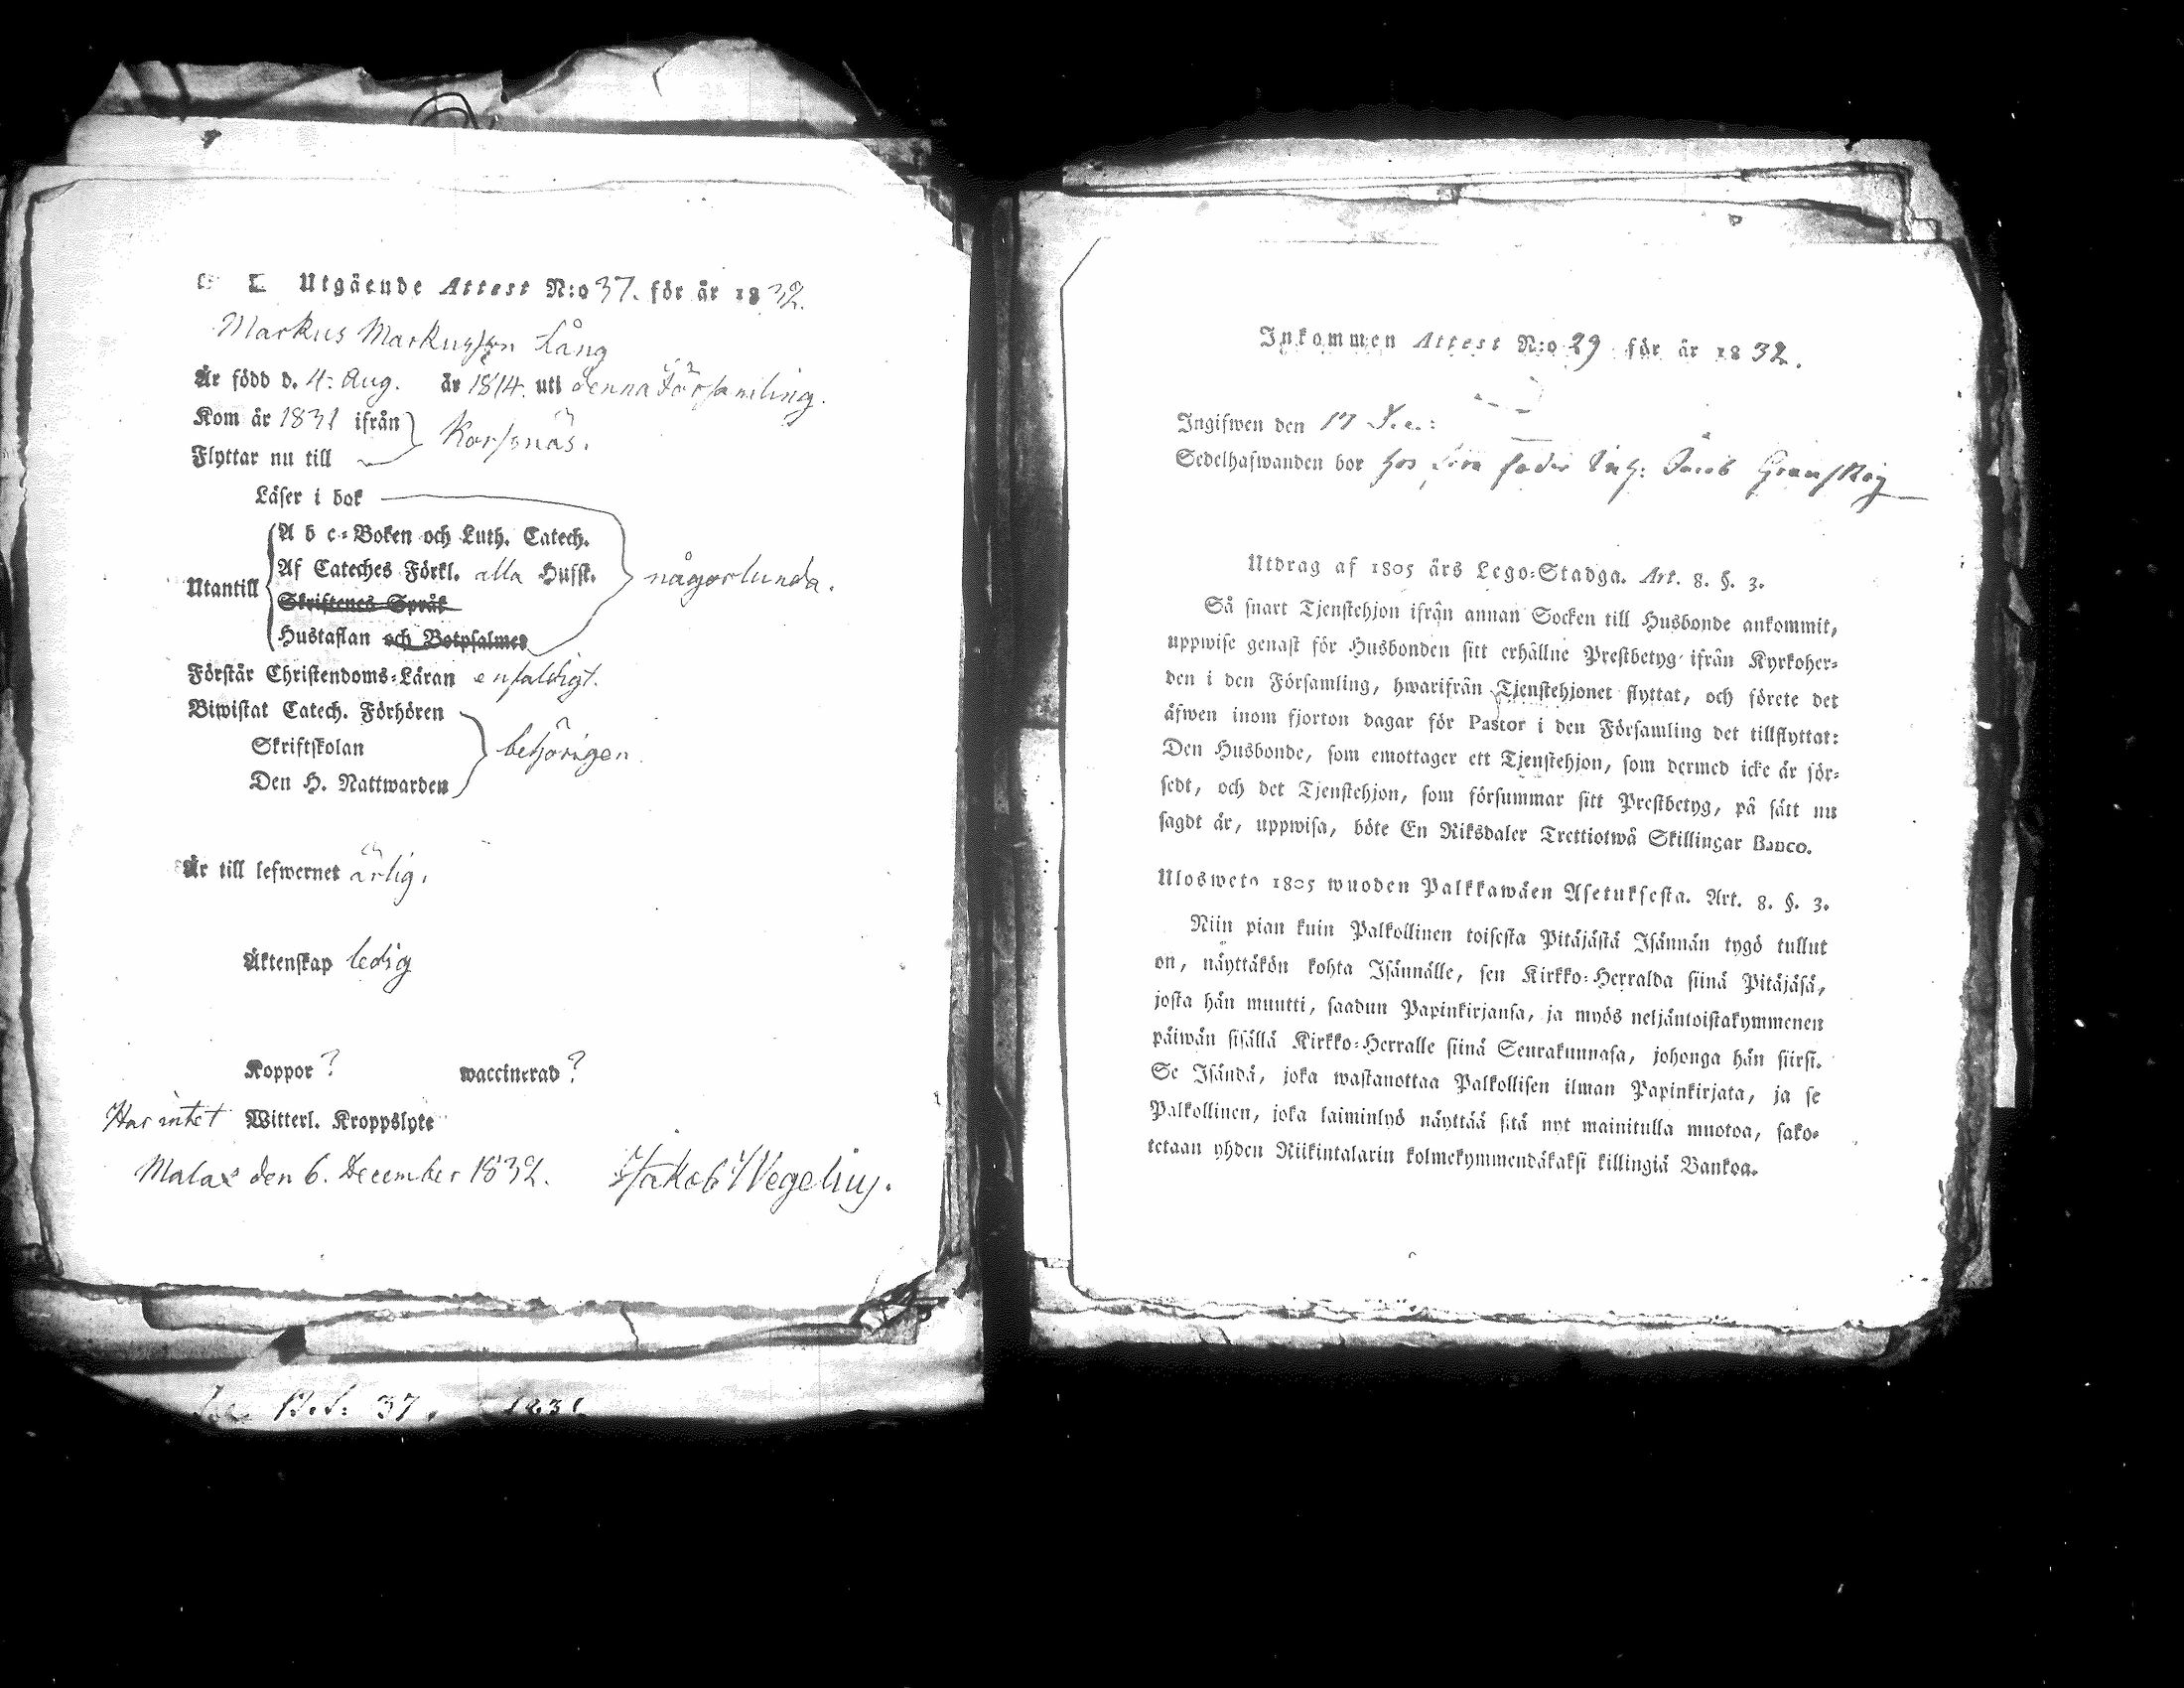 Utgående Attest N:o 37. för år 1832.
Markus Markusson Lång
Är född d. 4: Aug. år 1814. uti denna Församling.
Kom år 1831 ifrån
Korsnäs.
Flyttar nu till
Läser i bok
Utantill
A b c-Boken och Luth. Catech.
Af Cateches Förkl. alla Hufst.
Skriftenes Språk
Hustaflan och Botpsalmer
någorlunda.
Förstår Christendoms-Läran enfaldigt.
Biwistat Catech. Förhören
Skriftskolan
Den H. Nattwarden
behörigen.
Är till lefwernet ärlig.
Äktenskap ledig
Koppor ? waccinerad ?
Har intet Witterl. Kroppslyte
Malax den 6. December 1832. Jakob Wegelius.
37. 1831
Inkommen Attest N:o 29 för år 1832.
Ingifwen den 17
Sedelhafwanden bor hos
Jacob
Utdrag af 1805 års Lego-Stadga. Art. 8. §. 3.
Så snart Tjenstehjon ifrån annan Socken till Husbonde ankommit,
uppwise genast för Husbonden sitt erhållne Prestbetyg ifrån Kyrkoher-
den i den Församling, hwarifrån Tjenstehjonet flyttat, och förete det
äfwen inom fjorton dagar för Pastor i den Församling det tillflyttat:
Den Husbonde, som emottager ett Tjenstehjon, som dermed icke är för-
sedt, och det Tjenstehjon, som försummar sitt Prestbetyg, på sätt nu
sagdt är, uppwisa, böte En Riksdaler Trettiotwå Skillingar Banco.
Ulosweto 1805 wuoden Palkkawäen Asetuksesta. Art. 8. §. 3.
Niin pian kuin Palkollinen toisesta Pitäjästä Isännän tygö tullut
on, näyttäkön kohta Isännälle, sen Kirkko-Herralda siinä Pitäjäsä,
josta hän muutti, saadun Papinkirjansa, ja myös neljäntoistakymmenen
päiwän sisällä Kirkko-Herralle siinä Seurakunnasa, johonga hän siirsi.
Se Isändä, joka wastanottaa Palkollisen ilman Papinkirjata, ja se
Palkollinen, joka laiminlyö näyttää sitä nyt mainitulla muotoa, sako-
tetaan yhden Riikintalarin kolmekymmendäkaksi killingiä Bankoa.